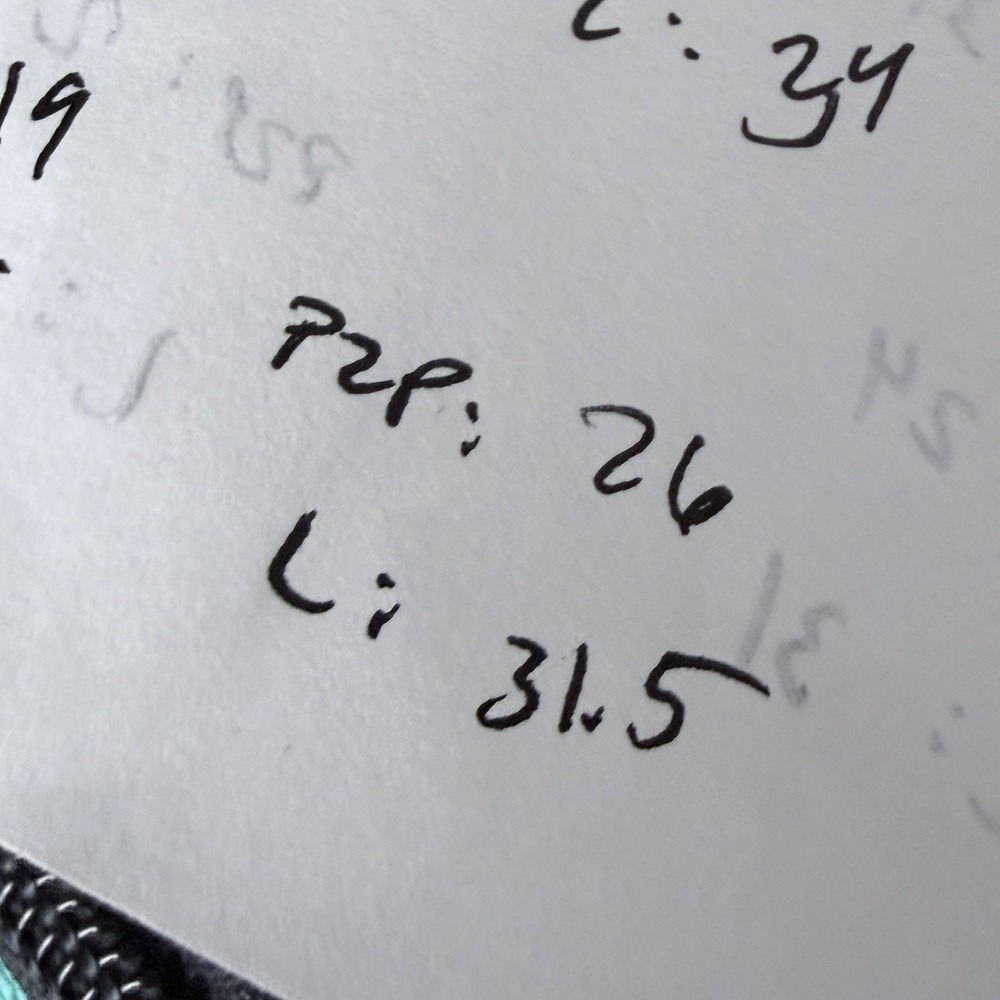 L: 34
19
P2P: 26
L: 31.5